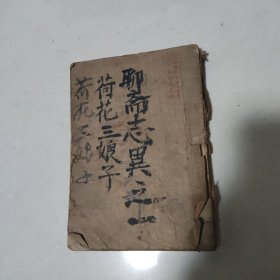 聊斋志異之一
荷花三娘子
荷花三娘子